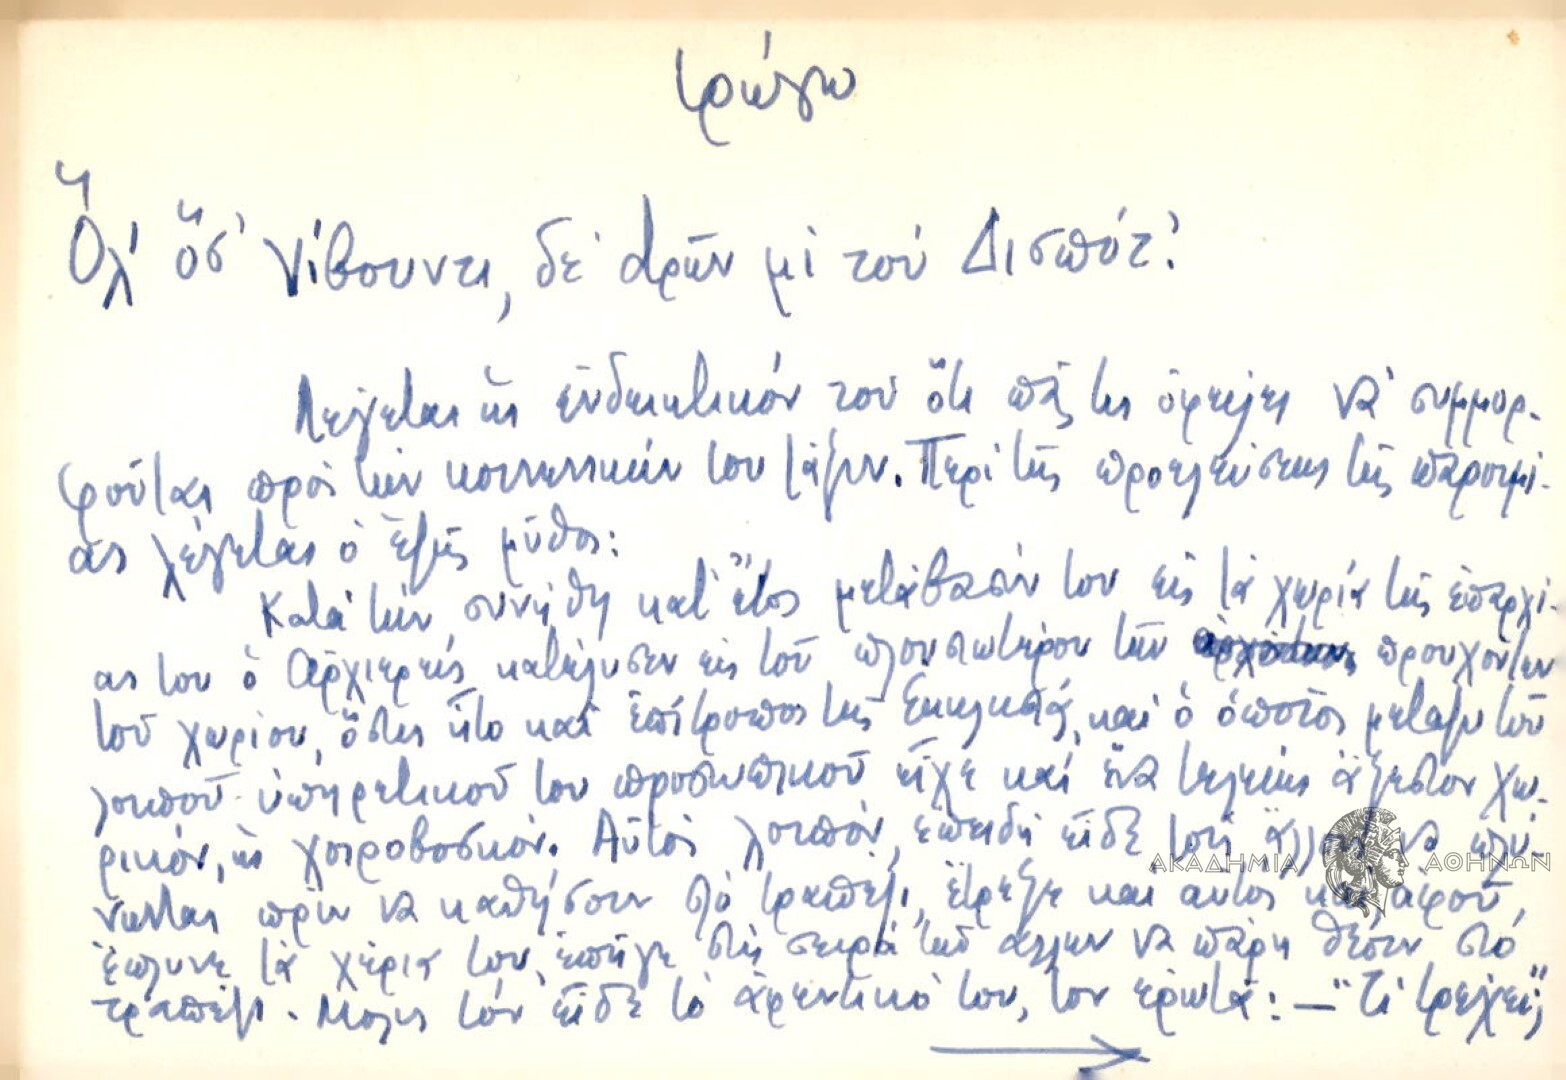 τρώγω
Ὅλ' ὅσ' νίβουντι, δε' τρῶν μὶ τοὺ Δισπότ'.
Λέγεται ὡς ἐνδεικτικὸν τοῦ ὅτι πᾶς τις ὀφείλει νὰ συμμορ-
φοῦται πρὸς τὴν κοινωνικὴν του τάξιν. Περὶ τῆς προελεύσεως τῆς παροιμί-
ας λέγεται ὁ ἑξῆς μῦθος:
Κατὰ τὴν συνήθη κατ' ἔτος μετάβασίν του εἰς τὰ χωριά τῆς ἐπαρχί-
ας του ὁ Ἀρχιερεὺς κατέλυσεν εἰς τοῦ πλουσιωτέρου τῶν προυχόντων
τοῦ χωρίου, ὅστις ἦτο καὶ ἐπίτροπος τῆς Ἐκκλησιᾶς, καὶ ὁ ὁποῖος μεταξυ τοῦ
λοιποῦ ὑπηρετικοῦ του προσωπικοῦ εἶχε καὶ ἕνα τελείως ἄξεστον χω-
ρικόν, ὡς χοιροβοσκόν. Αὐτὸς λοιπόν, ἐπειδὴ εἶδε τοὺς ἄλλους νὰ πλύ-
νωνται πρὶν νὰ καθήσουν στὸ τραπέζι, ἔτρεξε καὶ αὐτὸς καὶ, ἀφοῦ,
ἔπλυνε τὰ χέρια του, ἐπῆγε στὴ σειρὰ τῶν ἄλλων νὰ πάρη θέσιν στὸ
τραπέζι. Μόλις τὸν εἶδε τὸ ἀφεντικὸ του, τον ἐρωτᾶ: – "Τὶ τρέχει;
ΑΚΑΔΗΜΙΑ ΑΘΗΝΩΝ